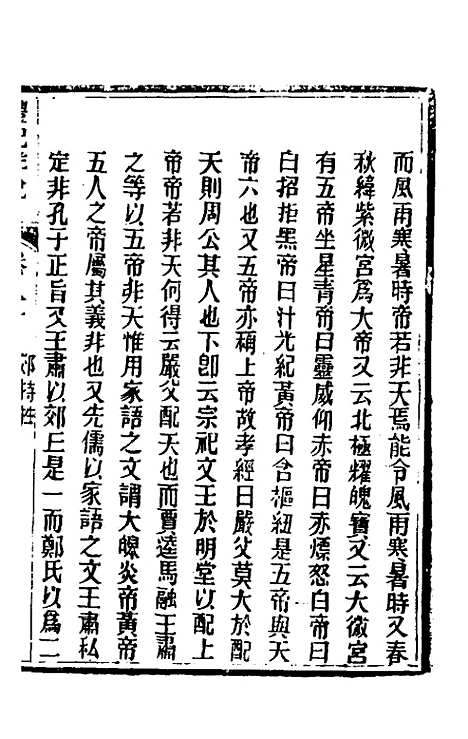 而風雨寒暑時帝若非天焉能令風雨寒暑時又春
秋緯紫微宮爲大帝又云北極耀魄寶又云大微宮
有五帝坐星青帝曰靈威仰赤帝曰赤熛怒白帝曰
白招拒黑帝曰汁光紀黃帝曰含樞紐是五帝與天
帝六也又五帝亦稱上帝故孝經曰嚴父莫大於配
天則周公其人也下卽云宗祀文王於明堂以配上
帝帝若非天何得云嚴父配天也而賈逵馬融王肅
之等以五帝非天惟用家語之文謂大皥炎帝黃帝
五人之帝屬其義非也又先儒以家語之文王肅私
定非孔子正旨又王肅以郊丘是一而鄭氏以爲二
郊特牲